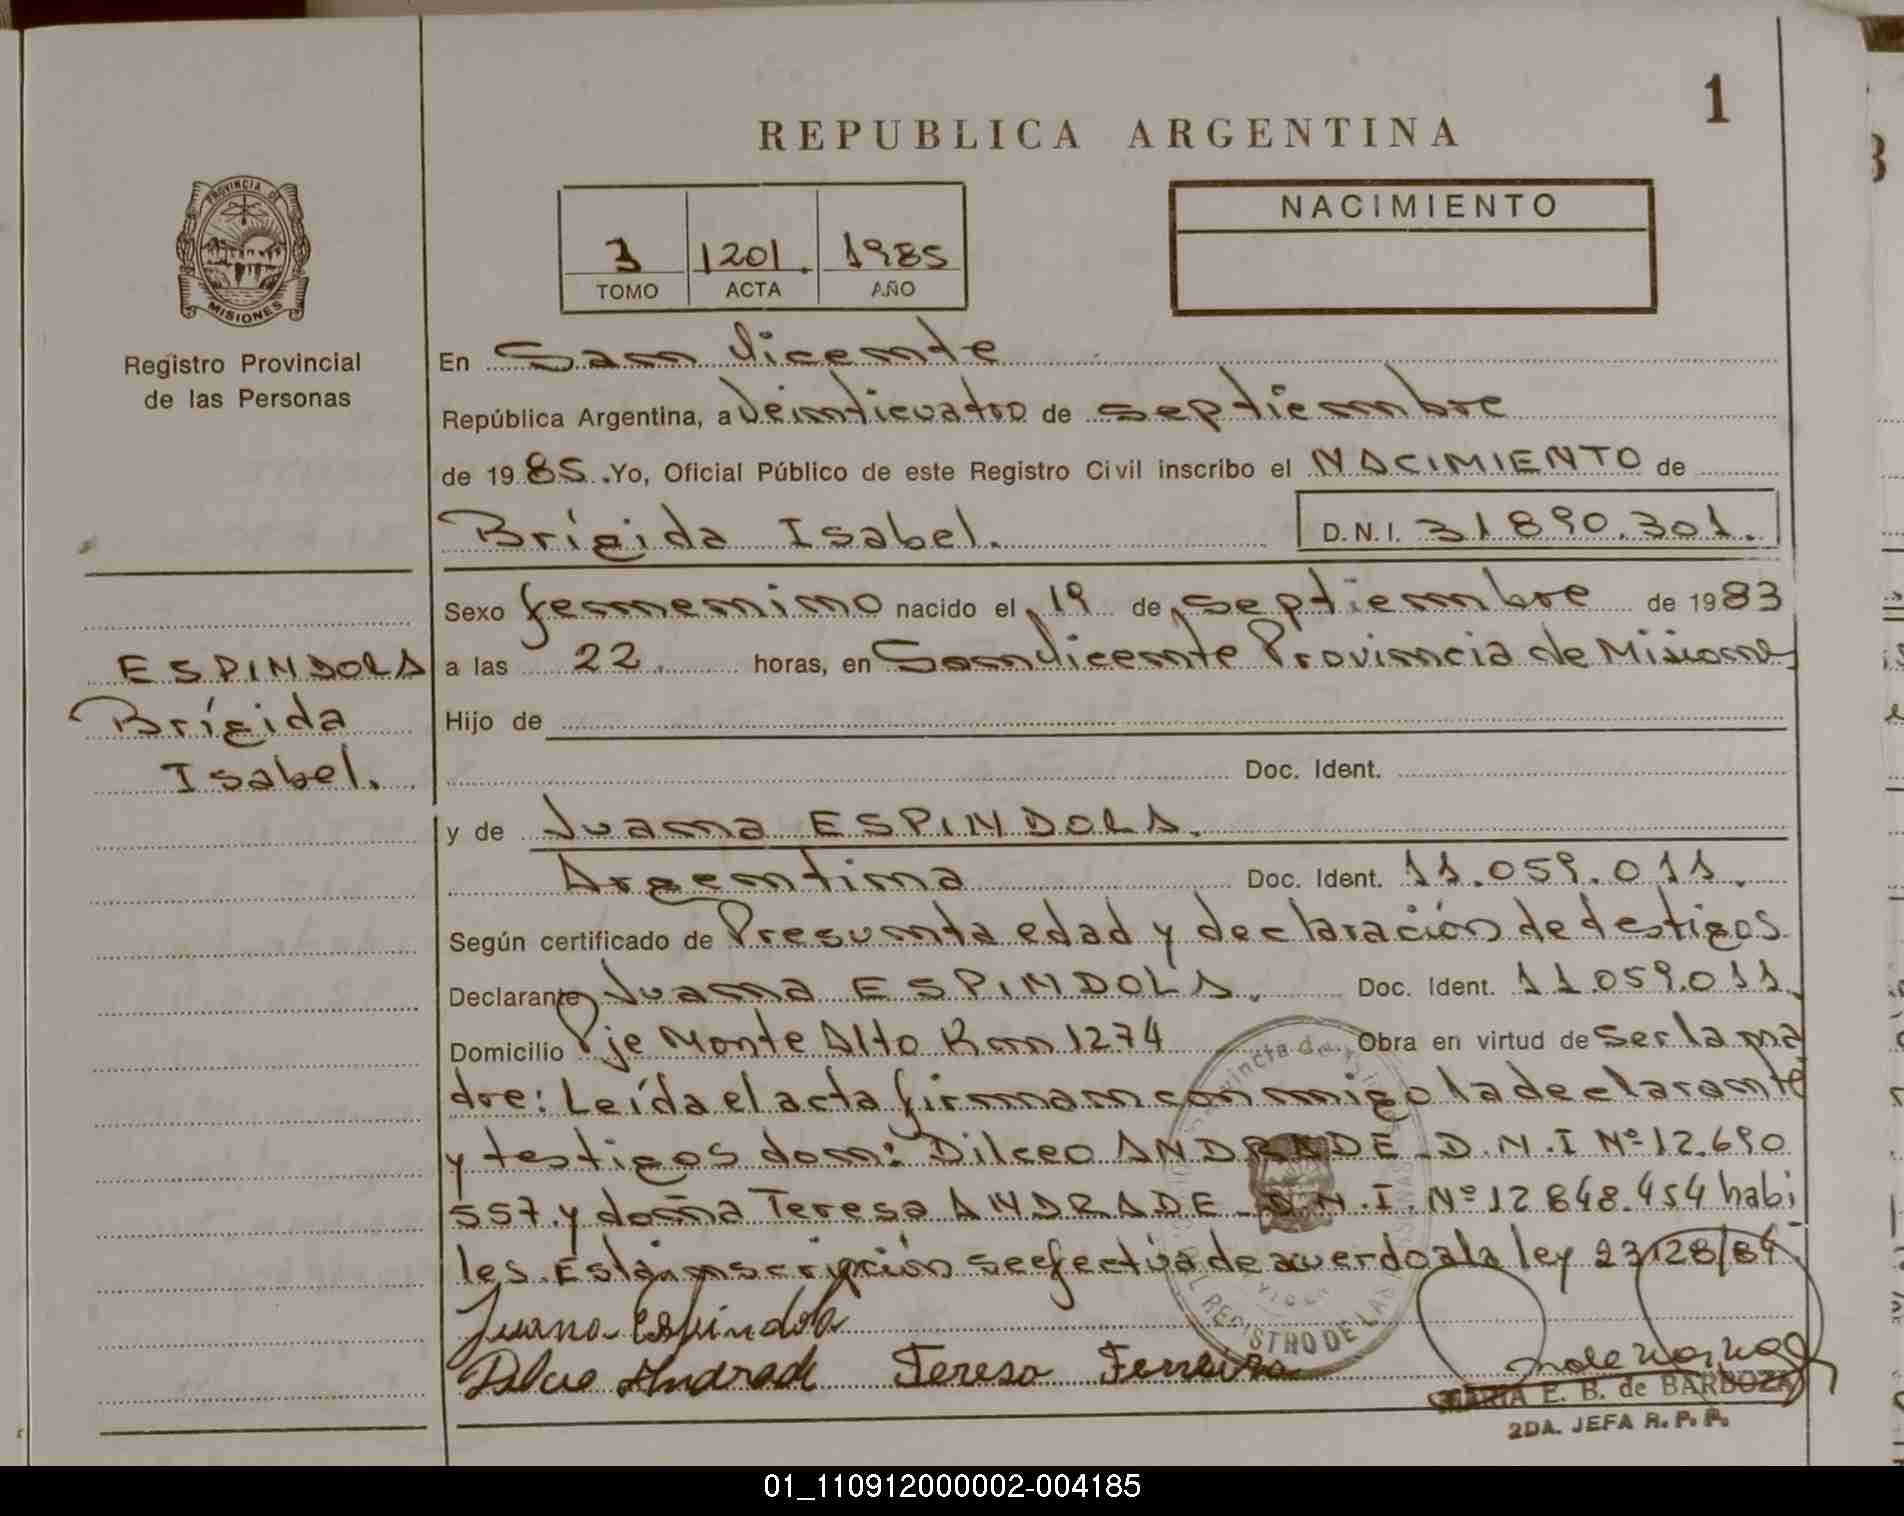 1
REPUBLICA ARGENTINA
PROVINCIA DE
MISIONES
Registro Provincial
de las Personas
3 1201. 1985
TOMO ACTA AÑO
NACIMIENTO
En San Vicente
República Argentina, a Veinticuatro de septiembre
de 1985. Yo, Oficial Público de este Registro Civil inscribo el NACIMIENTO de
Brígida Isabel. D.N.I. 31890.301.
Sexo femenino nacido el 19 de septiembre de 1983
a las 22. horas, en San Vicente Provincia de Misiones
Hijo de
Doc. Ident.
ESPINDOLA
Brígida
Isabel.
y de Juana ESPINDOLA.
Argentina Doc. Ident. 11.059.011.
Según certificado de Presunta edad y declaración de testigos
Declarante Juana ESPINDOLA. Doc. Ident. 11.059.011.
Domicilio Pje Monte Alto Km 1274 Obra en virtud de Ser la ma
dre: Leída el acta firman conmigo la declarante
y testigos don: Dilceo ANDRADE - D.N.I Nº 12.690
557. y doña Teresa ANDRADE - D.N.I. Nº 12848.454 habi
les. Esta inscripción se efectúa de acuerdo a la ley 23128/84
Juana Espindola
Andrade Teresa Ferreira
REGISTRO DE LAS
MARIA E. B. de BARBOZA
2DA. JEFA R.P.P.
01_110912000002-004185